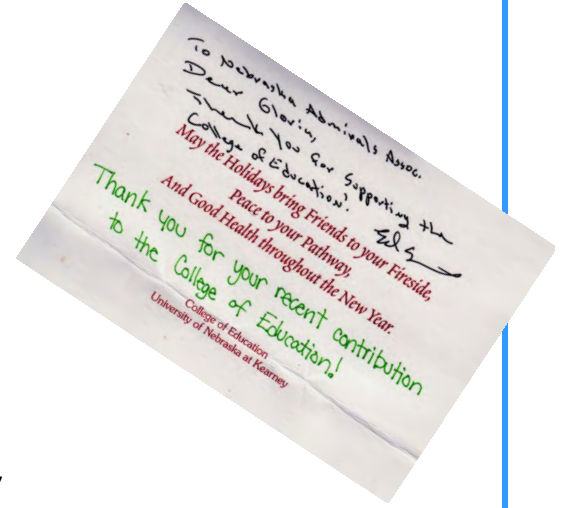 To Nebraska Admirals Assoc.
Dear Gloria,
Thank you for supporting the
College of Education!
May the Holidays bring Friends to your Fireside,
Peace to your Pathway,
And Good Health throughout the New Year.
Thank you for your recent contribution
to the College of Education!
College of Education
University of Nebraska at Kearney